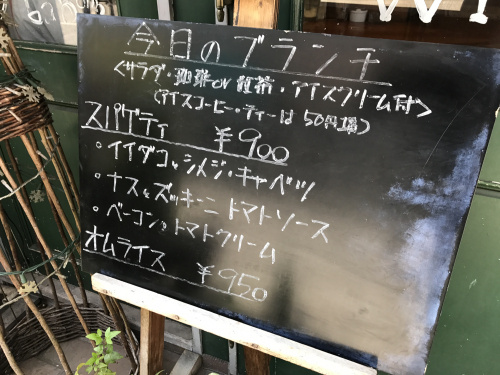 今日のブランチ
<サラダ・珈琲or紅茶・アイスクリーム付>
(アイスコーヒー・ティーは50円増)
スパゲティ ¥900
・イイダコ、シメジ・キャベツ
・ナスとズッキーニトマトソース
・ベーコンのトマトクリーム
オムライス ¥950